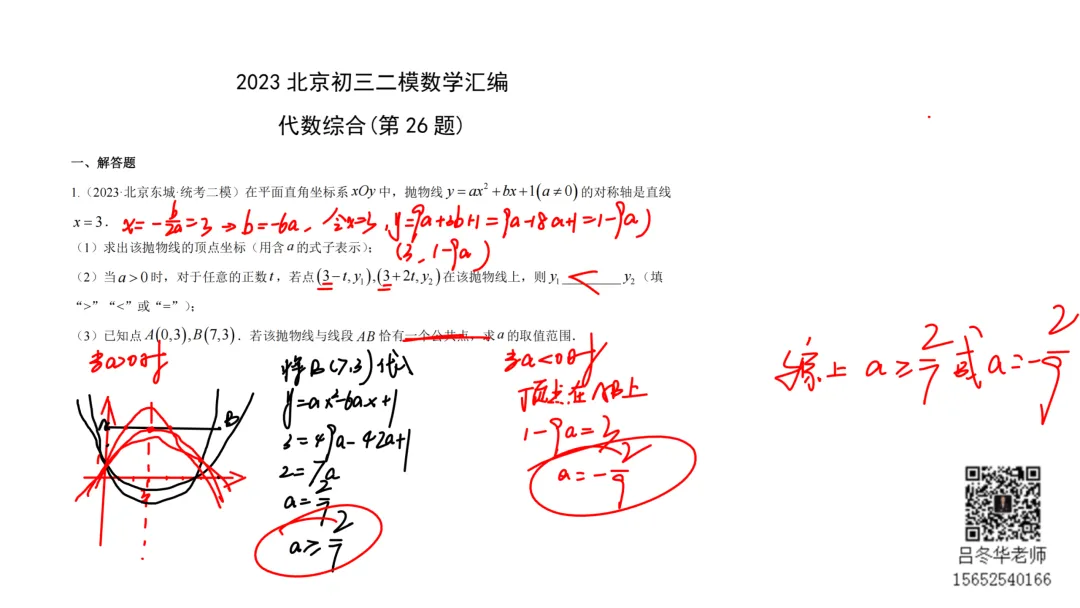 2023 北京初三二模数学汇编
代数综合(第 26 题)
一、解答题
1.（2023·北京东城·统考二模）在平面直角坐标系 xOy 中，抛物线 y=ax²+bx+1(a≠0) 的对称轴是直线
x=3． x=-b/2a=3→b=-6a, 令x=3, y=9a+3b+1=9a-18a+1=1-9a
（1）求出该抛物线的顶点坐标（用含 a 的式子表示）；
(3, 1-9a)
（2）当 a>0 时，对于任意的正数 t，若点 (3-t,y₁),(3+2t,y₂) 在该抛物线上，则 y₁ ____<____ y₂（填
“>”“<”或“=”）；
（3）已知点 A(0,3),B(7,3)．若该抛物线与线段 AB 恰有一个公共点，求 a 的取值范围．
当a>0时
B
3
将B(7,3)代入
y=ax²-6ax+1
3=49a-42a+1
2=7a
a=2/7
a≥2/7
当a<0时
顶点在AB上
1-9a=3
a=-2/9
综上 a≥2/7 或 a=-2/9
吕冬华老师
15652540166